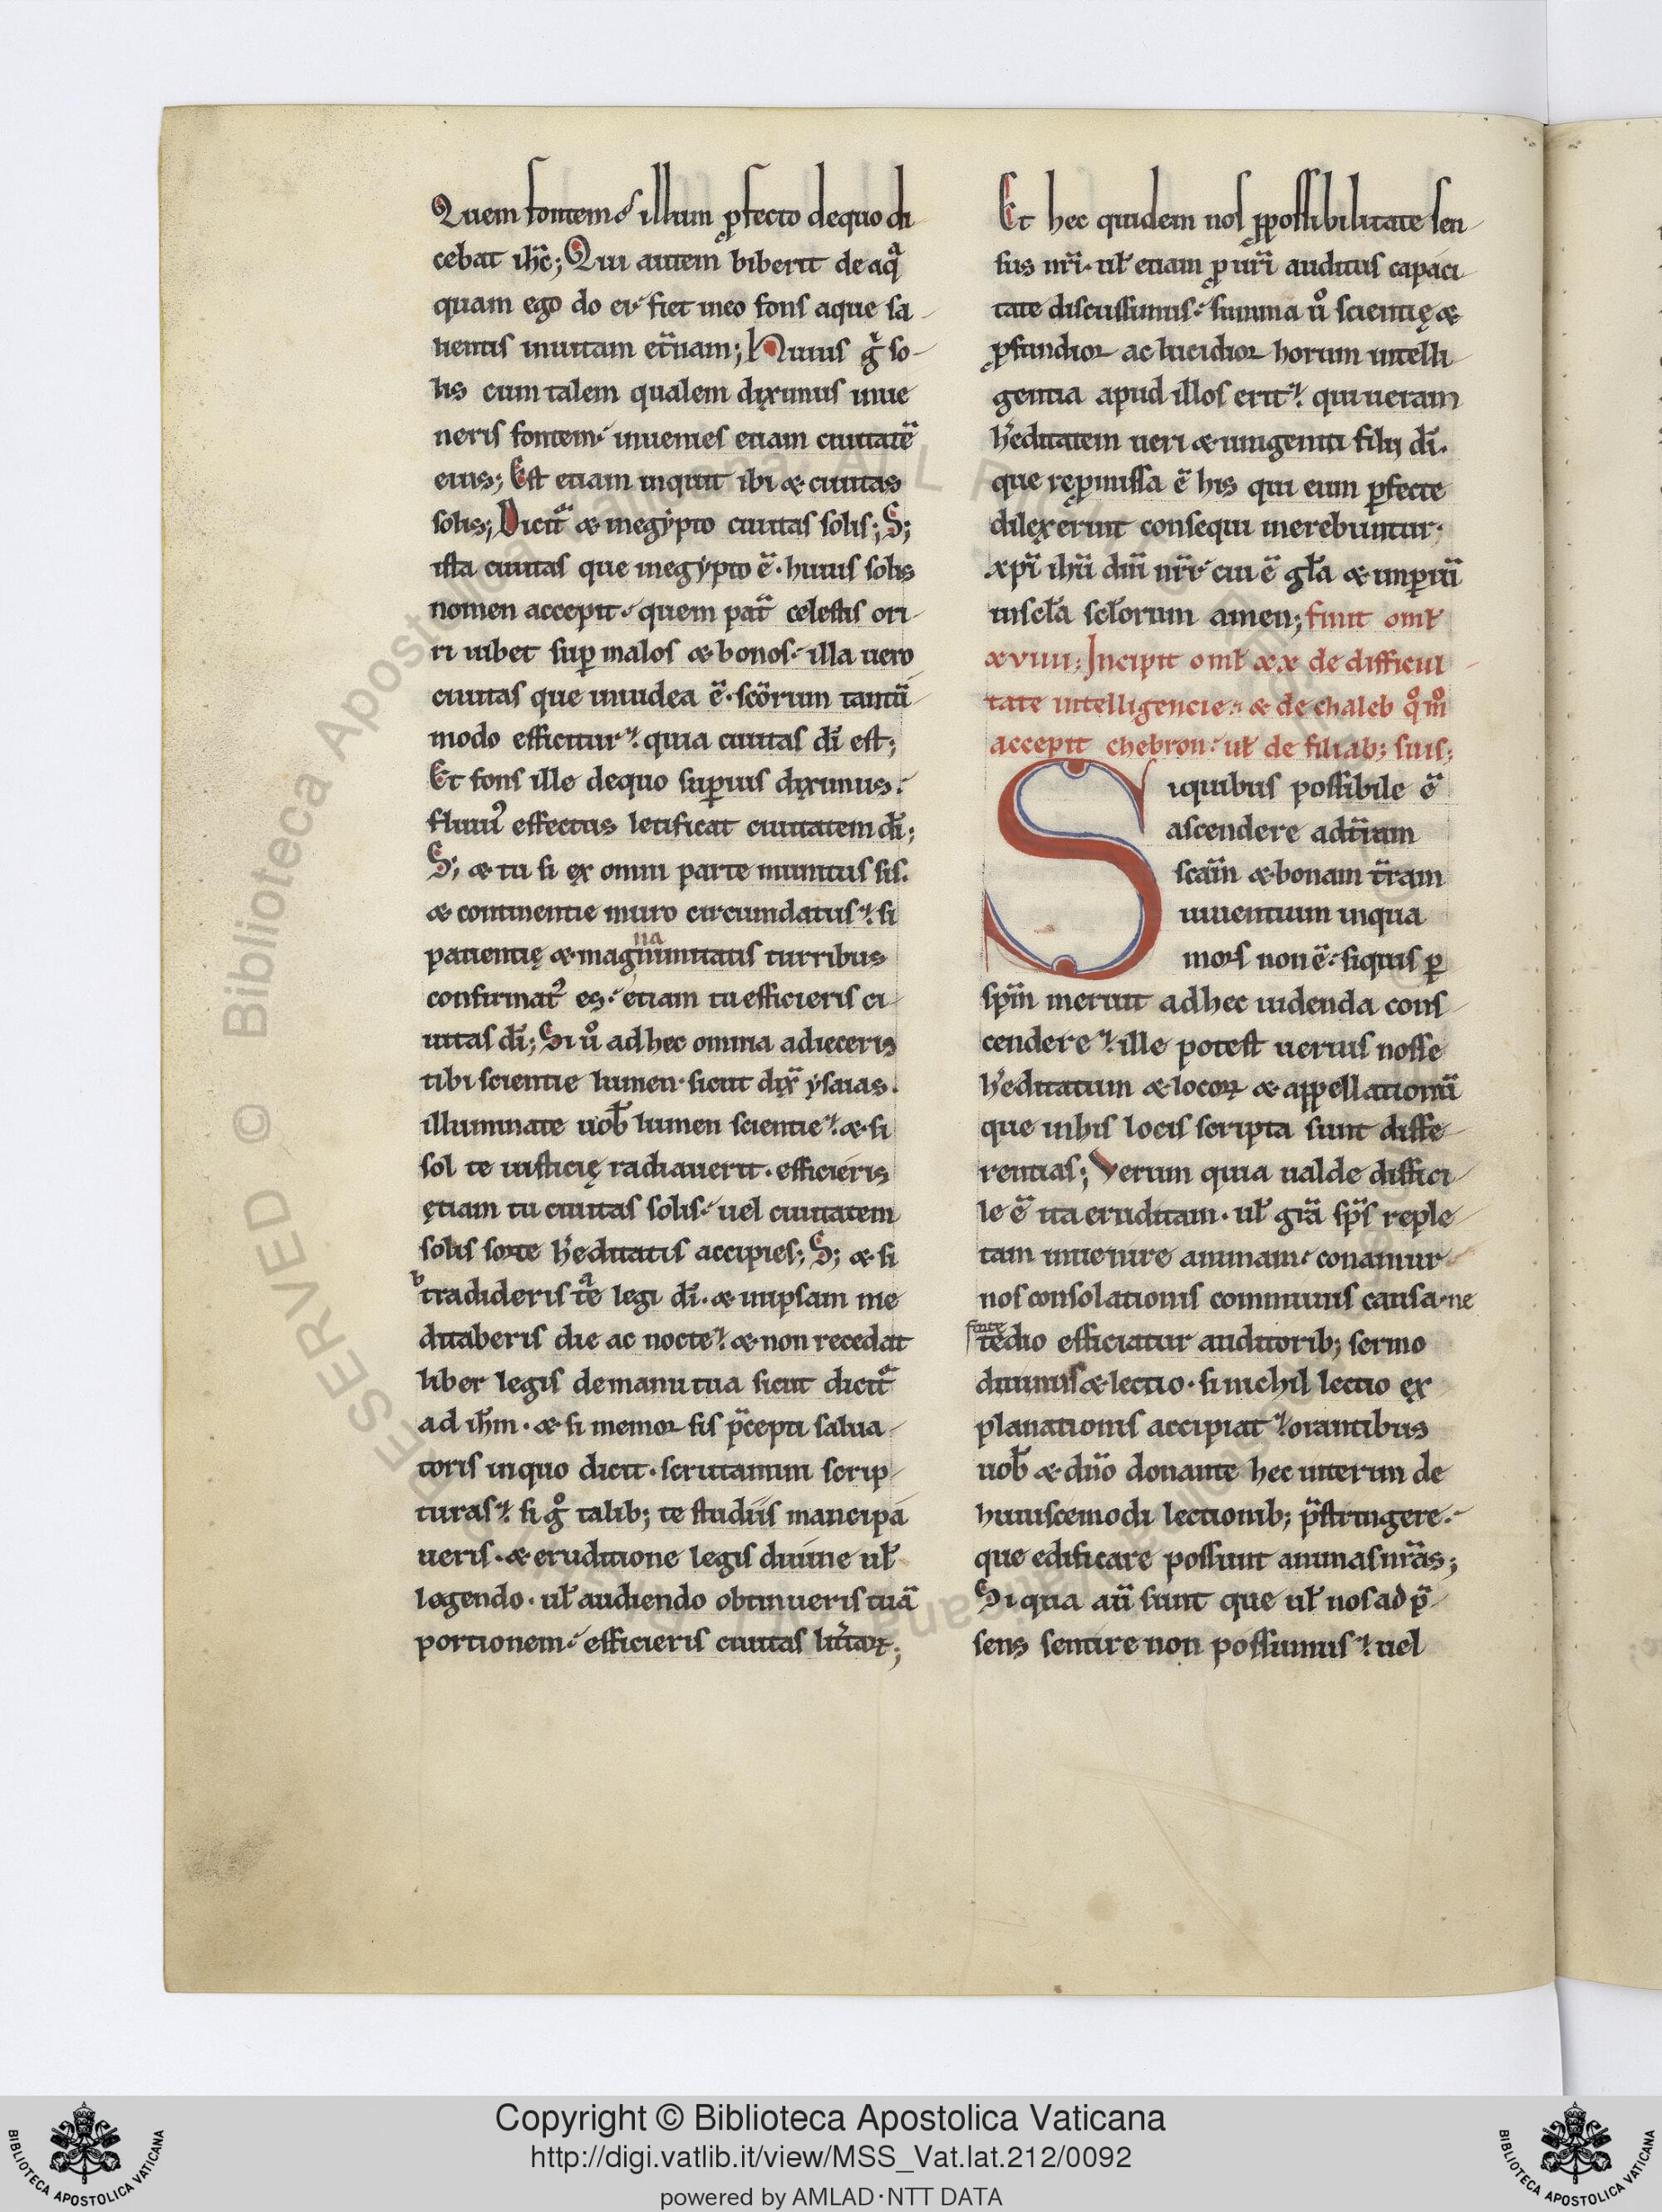 Quem fontem? illum ꝓfecto dequo di
cebat ihc̄; Qui autem biberit de aqͣ
quam ego do ei fiet in eo fons aque sa
lientis inuitam et̄nam; Huius gͥ so
lis cum talem qualem diximus inue
neris fontem inuenies etiam ciuitatē
eius; Est etiam inquit ibi & ciuitas
solis; Dicit̄ & inegypto ciuitas solis; S;
ista ciuitas que inegypto ē· huius solis
nomen accepit quem pat̄ celestis ori
ri iubet suꝑ malos & bonos illa uero
ciuitas que iniudea ē· sc̄orum tantū
modo efficitur quia ciuitas dī est;
Et fons ille dequo suꝑius diximus
fluuiꝰ effectus letificat ciuitatem dī;
S; & tu si ex omni parte munitus sis.
& continentie muro circumdatus si
na
patientię & magnimitatis turribus
confirmatꝰ es etiam tu efficieris ci
uitas dī; Si uͦ ad hec omnia adieceris
tibi scientie lumen· sicut dix̄ ysaias.
illuminate uob̄ lumen scientie & si
sol te iusticię radiauerit· efficieris
ętiam tu ciuitas solis uel ciuitatem
solis sorte h̄editatis accipies; S; & si
b a
tradideris te legi dī· & inipsam me
ditaberis die ac nocte & non recedat
liber legis demanu tua sicut dicit̄
ad ihm̄· & si memor sis p̄cepti salua
toris inquo dicit· scrutamini scrip
turas si gͦ talib; te studiis mancipa
ueris· & eruditione legis diuine ul̄
legendo· ul̄ audiendo obtinueris tuā
portionem efficieris ciuitas litt̄aꝝ;
Et hec quidem nos ꝓpossibilitate sen
sus nr̄i· ul̄ etiam ꝓ ur̄i auditus capaci
tate discussimus summa uͦ scientię &
ꝓfundior ac lucidior horum intelli
gentia apud illos erit qui ueram
h̄editatem ueri & unigeniti filii dī.
que reꝓmissa ē his qui eum ꝑfecte
dilexerint consequi merebuntur·
xp̄i ihū dn̄i nr̄i cui ē gl̄a & imꝑiū
inscl̄a scl̄orum amen; finit oml̄
xviiii; Incipit oml̄ xx de difficul
tate intelligencie & de chaleb qͦmͦ
accepit chebron ul̄ de filiab; suis;
Siquibus possibile ē
ascendere adt̄ram
sc̄am & bonam t̄ram
uiuentium inqua
mors non ē siquis ꝑ
sp̄m meruit adhec uidenda cons
cendere ille potest uerius nosse
h̄editatum & locoꝝ & appellationū
que inhis locis scripta sunt diffe
rentias; Verum quia ualde diffici
le ē ita eruditam· ul̄ gr̄a sp̄s reple
tam inuenire animam conamur
nos consolationis communis causa ne
forte
tedio efficiatur auditorib; sermo
diuinus & lectio· si nichil lectio ex
planationis accipiat orantibus
uob̄ & dn̄o donante hec interim de
huiuscemodi lectionib; p̄stringere
que edificare possunt animas nr̄as;
Si qua aū sunt que ul̄ nos ad p̄
sens sentire non possumus uel
Copyright © Biblioteca Apostolica Vaticana
http://digi.vatlib.it/view/MSS_Vat.lat.212/0092
powered by AMLAD·NTT DATA
BIBLIOTECA APOSTOLICA VATICANA
BIBLIOTECA APOSTOLICA VATICANA